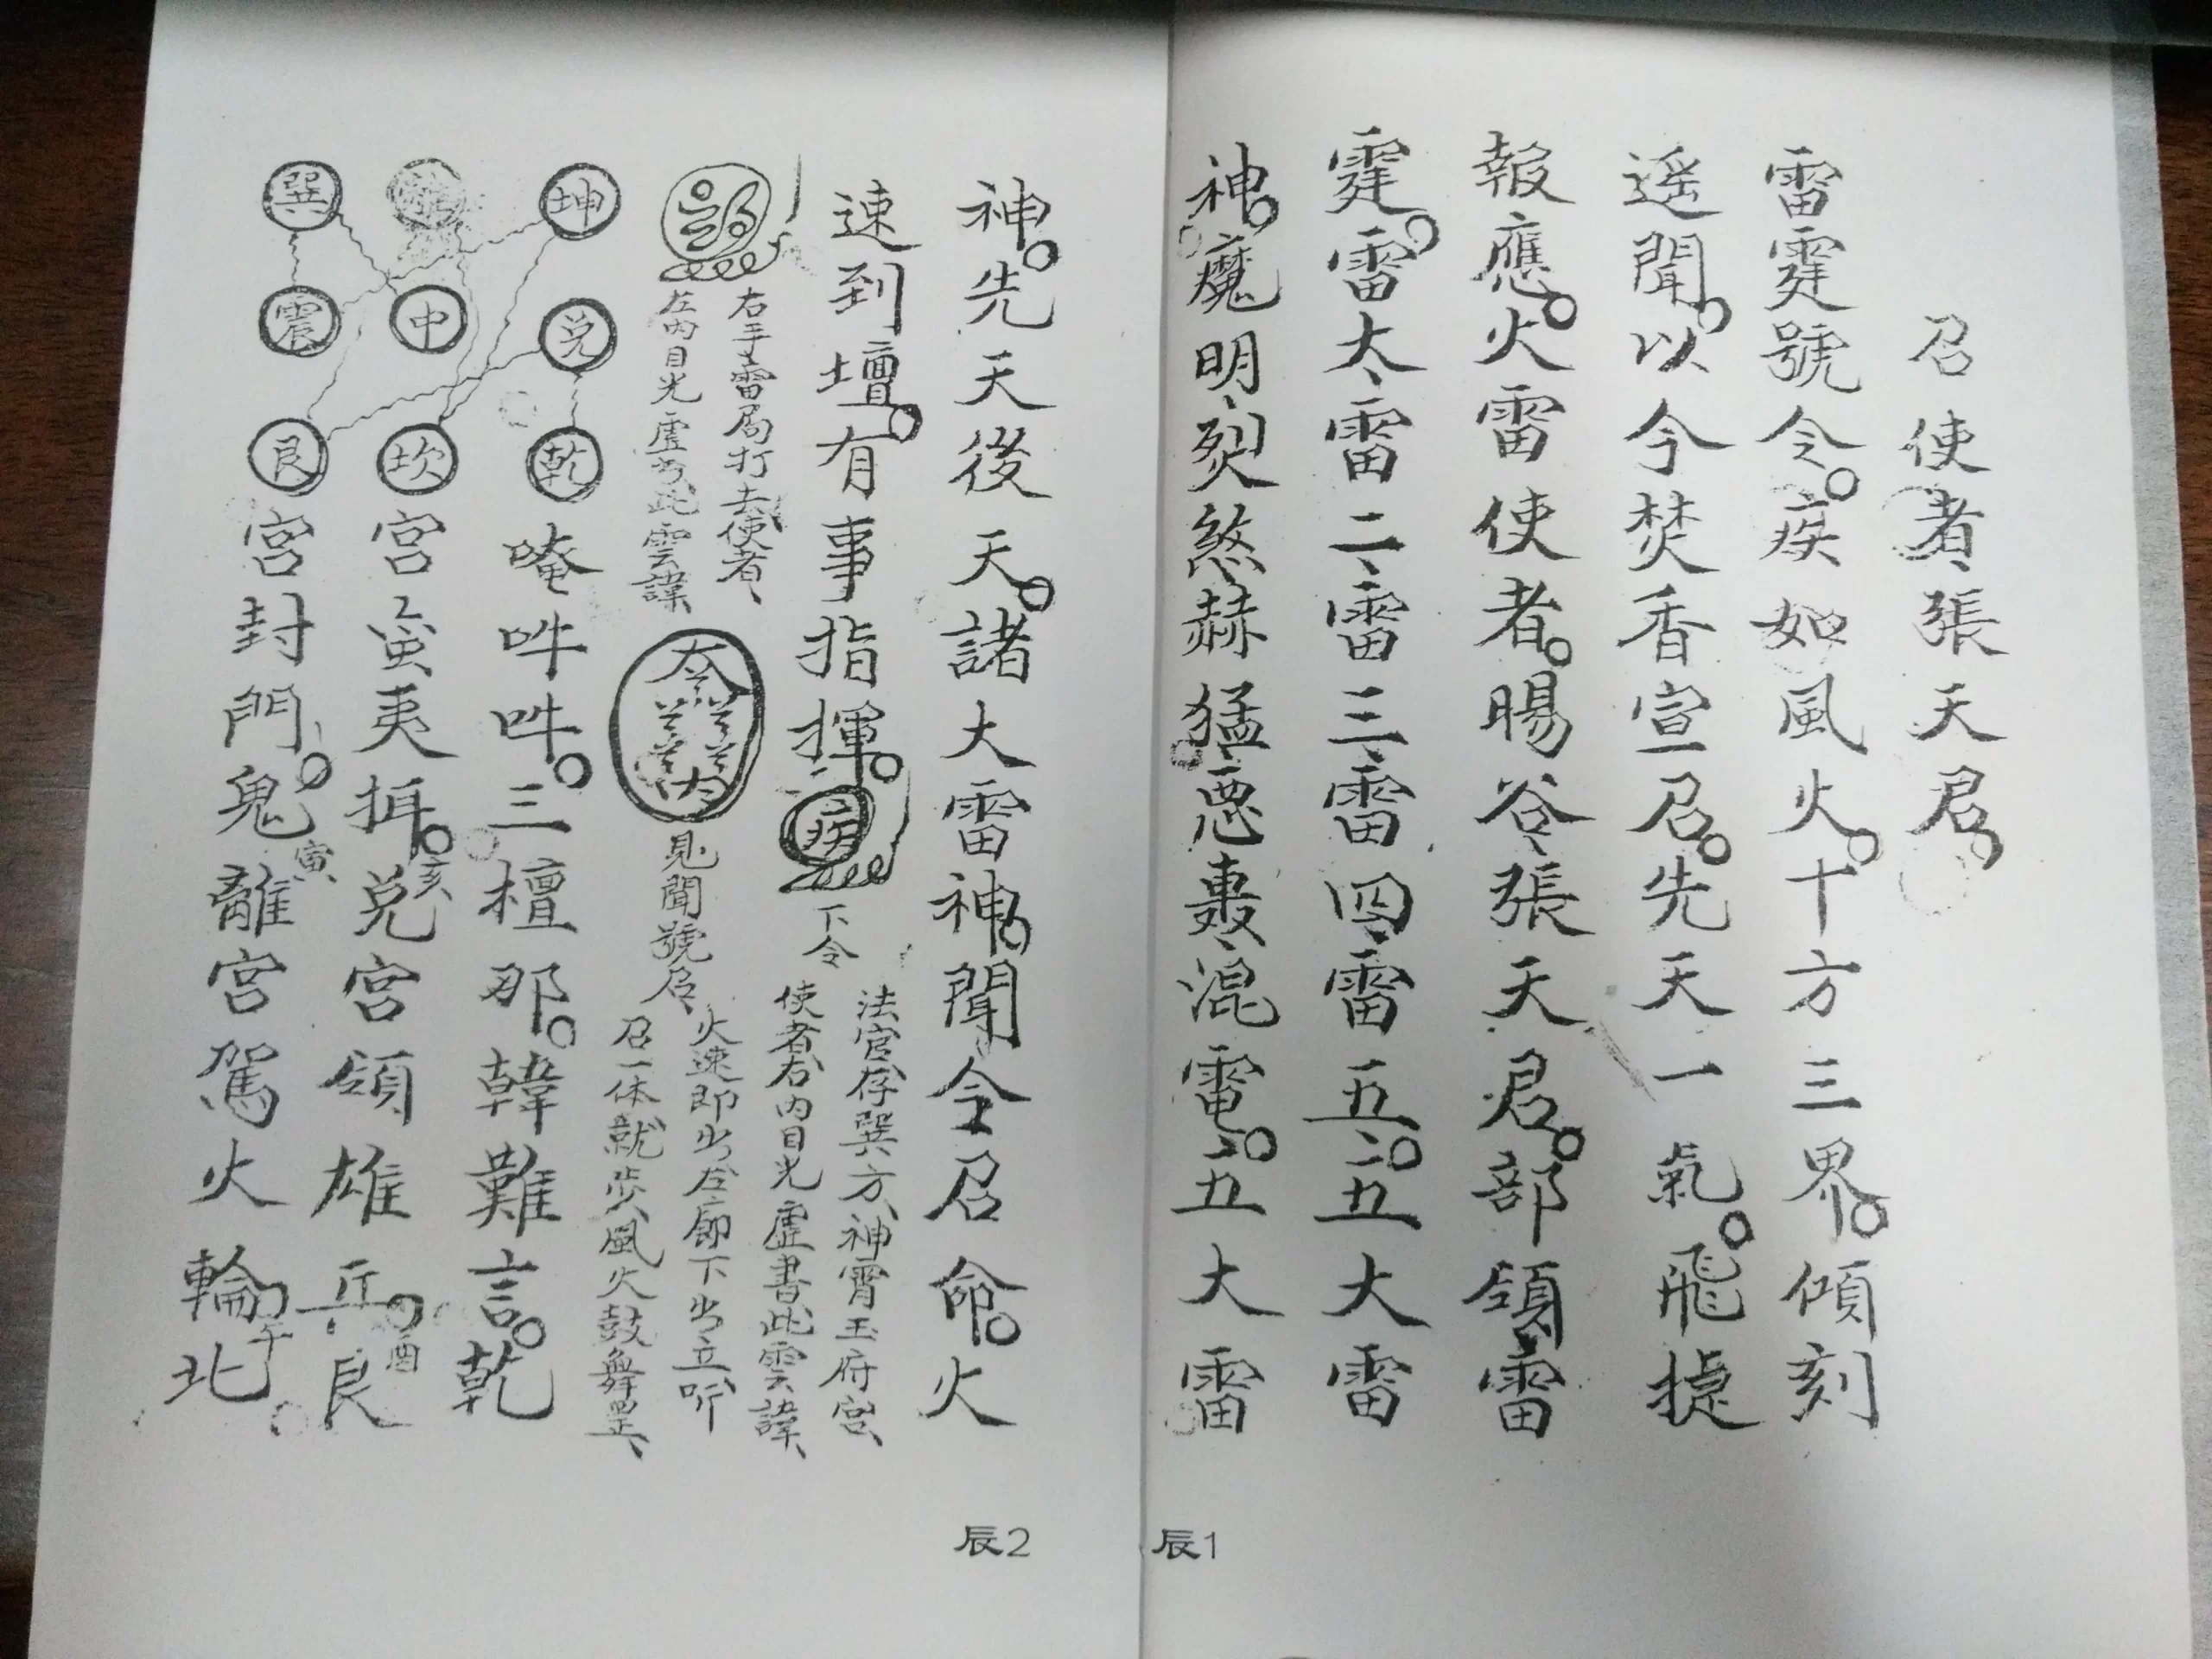 召使者張天君
雷霆號令疾如風火十方三界傾刻
遥聞以今焚香宣召先天一氣飛捷
報應火雷使者暘谷張天君部領雷
霆雷大雷二雷三雷四雷五五大雷
神魔明烈煞赫猛惡轟混電五大雷
辰1
神先天後天諸大雷神聞令召命火
速到壇有事指揮
疾
下令
法官存巽方神霄玉府宫
使者右内目光虛書此雲諱
右手雷局打去使者
左内目光虛書此雲諱
見聞號召
火速即出左廊下出立听
召一体就步風火鼓舞罡
坤
兑
乾唵吽吽三檀那韓難言乾
中
坎宮蛮夷揖亥兑宮領雄兵酉艮
巽
震
艮宮封門鬼寅離宮駕火輪午北
辰2